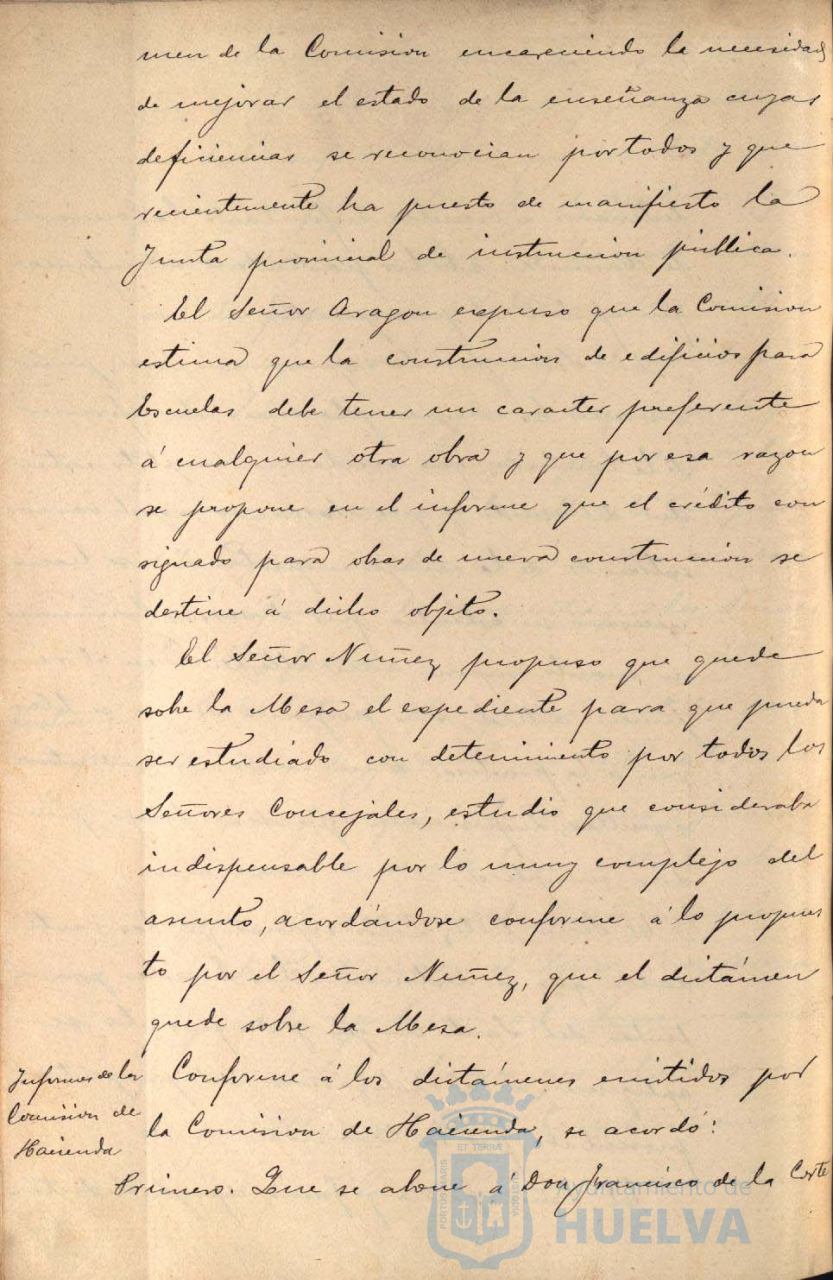 men de la Comision encareciendo la necesidad
de mejorar el estado de la enseñanza cuyas
deficiencias se reconocian por todos y que
recientemente ha puesto de manifiesto la
Junta provincial de instruccion publica.
El Señor Aragon expuso que la Comision
estima que la construccion de edificios para
Escuelas debe tener un caracter preferente
á cualquier otra obra y que por esa razon
se propone en el informe que el crédito con
signado para obras de nueva construccion se
destine á dicho objeto.
El Señor Nuñez propuso que quede
sobre la Mesa el expediente para que pueda
ser estudiado con detenimiento por todos los
Señores Concejales, estudio que consideraba
indispensable por lo muy complejo del
asunto, acordándose conforme á lo propues
to por el Señor Nuñez, que el dictámen
quede sobre la Mesa.
Informes de la
Comision de
Hacienda
Conforme á los dictámenes emitidos por
la Comision de Hacienda, se acordó:
Primero. Que se abone á Don Francisco de la Corte
Ayuntamiento de
HUELVA